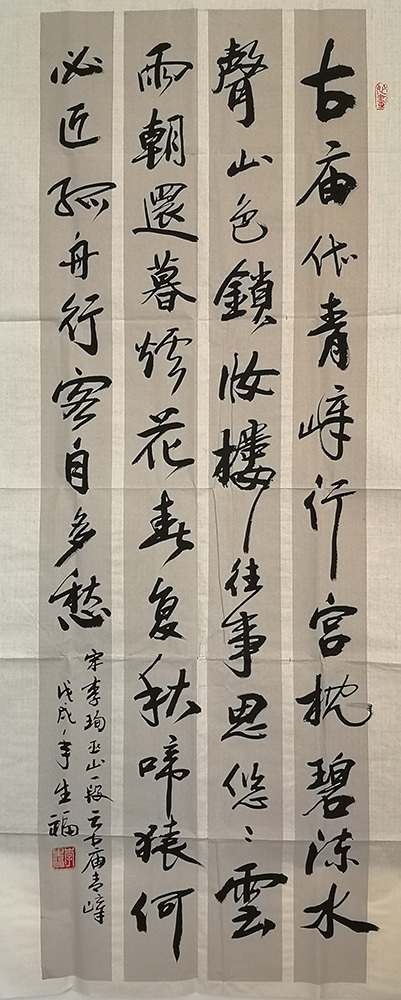 古庙依青嶂行宫枕碧流水
聲山色鎖妆樓往事思悠〻雲
雨朝還暮烟花春复秋啼猿何
必近孤舟行客自多愁
宋李珣巫山一段云古庙青嶂
戊戌年生福